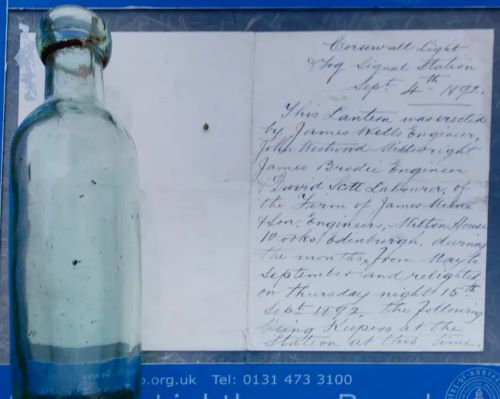 Corsewall Light
& Fog Signal Station
Sept. 4th 1892.
This Lantern was erected
by James Wells Engineer,
John Westwood Millwright
James Brodie Engineer
& David Scott Labourer, of
the Firm of James Milne
& Son, Engineers, Milton House
Works, Edinburgh, during
the months from May to
September and relighted
on Thursday night 15th
Sept. 1892. the following
being Keepers at the
Station at this time.
.org.uk Tel: 0131 473 3100